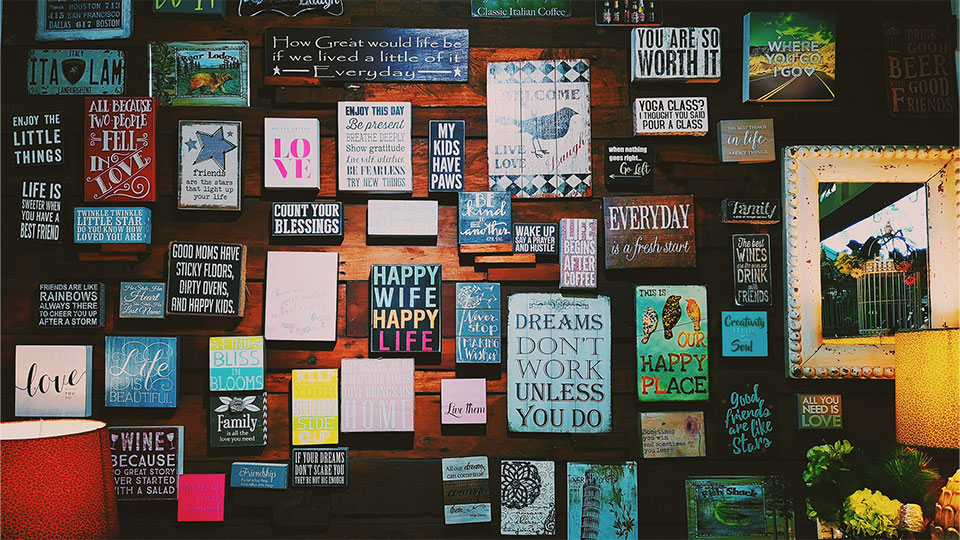 713 HOUSTON
415 SAN FRANCISCO
DALLAS 617 BOSTON
Classic Italian Coffee
ITALY
ITA LAM
LAMBORGHINI
How Great would life be
if we lived a little of it
Everyday
YOU ARE SO
WORTH IT
WHERE
YOU GO
I GO
DRINK
GOOD
BEER
GOOD
FRIENDS
ENJOY
THE
LITTLE
THINGS
ALL BECAUSE
TWO PEOPLE
FELL
IN
LOVE
friends
are the stars
that light up
your life
LOVE
ENJOY THIS DAY
Be present
BREATHE DEEPLY
Show gratitude
BE FEARLESS
TRY NEW THINGS
MY
KIDS
HAVE
PAWS
WELCOME
LIVE
LOVE
Laugh
YOGA CLASS?
I THOUGHT YOU SAID
POUR A GLASS
THE BEST THINGS
in life
AREN'T THINGS
when nothing
goes right..
Go Left
LIFE IS
SWEETER WHEN
YOU HAVE A
BEST FRIEND
TWINKLE TWINKLE
LITTLE STAR
DO YOU KNOW HOW
LOVED YOU ARE
COUNT YOUR
BLESSINGS
BE
kind to
one
another
WAKE UP
SAY A PRAYER
AND HUSTLE
LIFE
BEGINS
AFTER
COFFEE
EVERYDAY
is a fresh start
Family
The best
WINES
are those we
DRINK
with
FRIENDS
GOOD MOMS HAVE
STICKY FLOORS,
DIRTY OVENS,
AND HAPPY KIDS.
FRIENDS ARE LIKE
RAINBOWS
ALWAYS THERE
TO CHEER YOU UP
AFTER A STORM
Heart
Last Name
HAPPY
WIFE
HAPPY
LIFE
Never
stop
MAKING
Wishes
DREAMS
DON'T
WORK
UNLESS
YOU DO
THIS IS
OUR
HAPPY
PLACE
Creativity
Soul
love
YOU
Life
IS
BEAUTIFUL
BLISS
IN
BLOOMS
Family
is all the
love you need
KEEP
YOUR
SUNNY
SIDE
UP
HOME
Live
Sometimes
you win
and sometimes
Good
friends are
like
Stars
ALL YOU
NEED IS
LOVE
WINE
BECAUSE
NO GREAT STORY
EVER STARTED
WITH A SALAD
Friendship
IF YOUR DREAMS
DON'T SCARE YOU
THEY'RE NOT BIG ENOUGH
All our dreams
can come true
courage